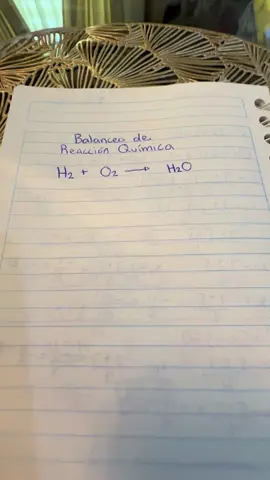 Balanceo de
Reacción Química
H₂ + O₂ → H₂O